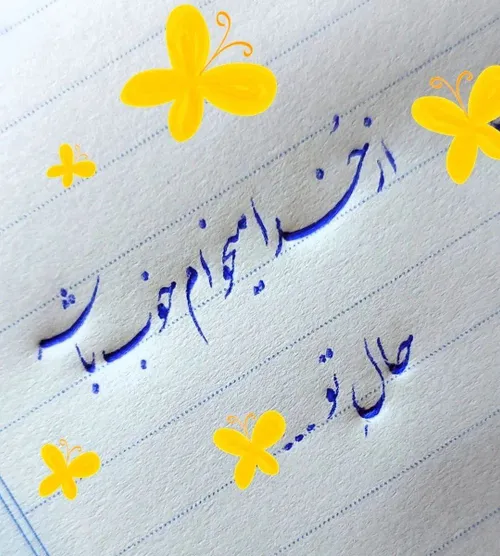 از خُدا میخوام خوب باشد
حالِ تو...